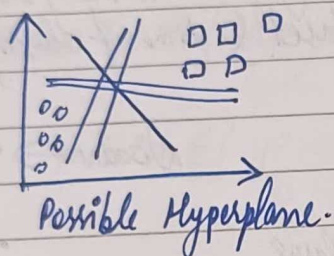 Possible Hyperplane.